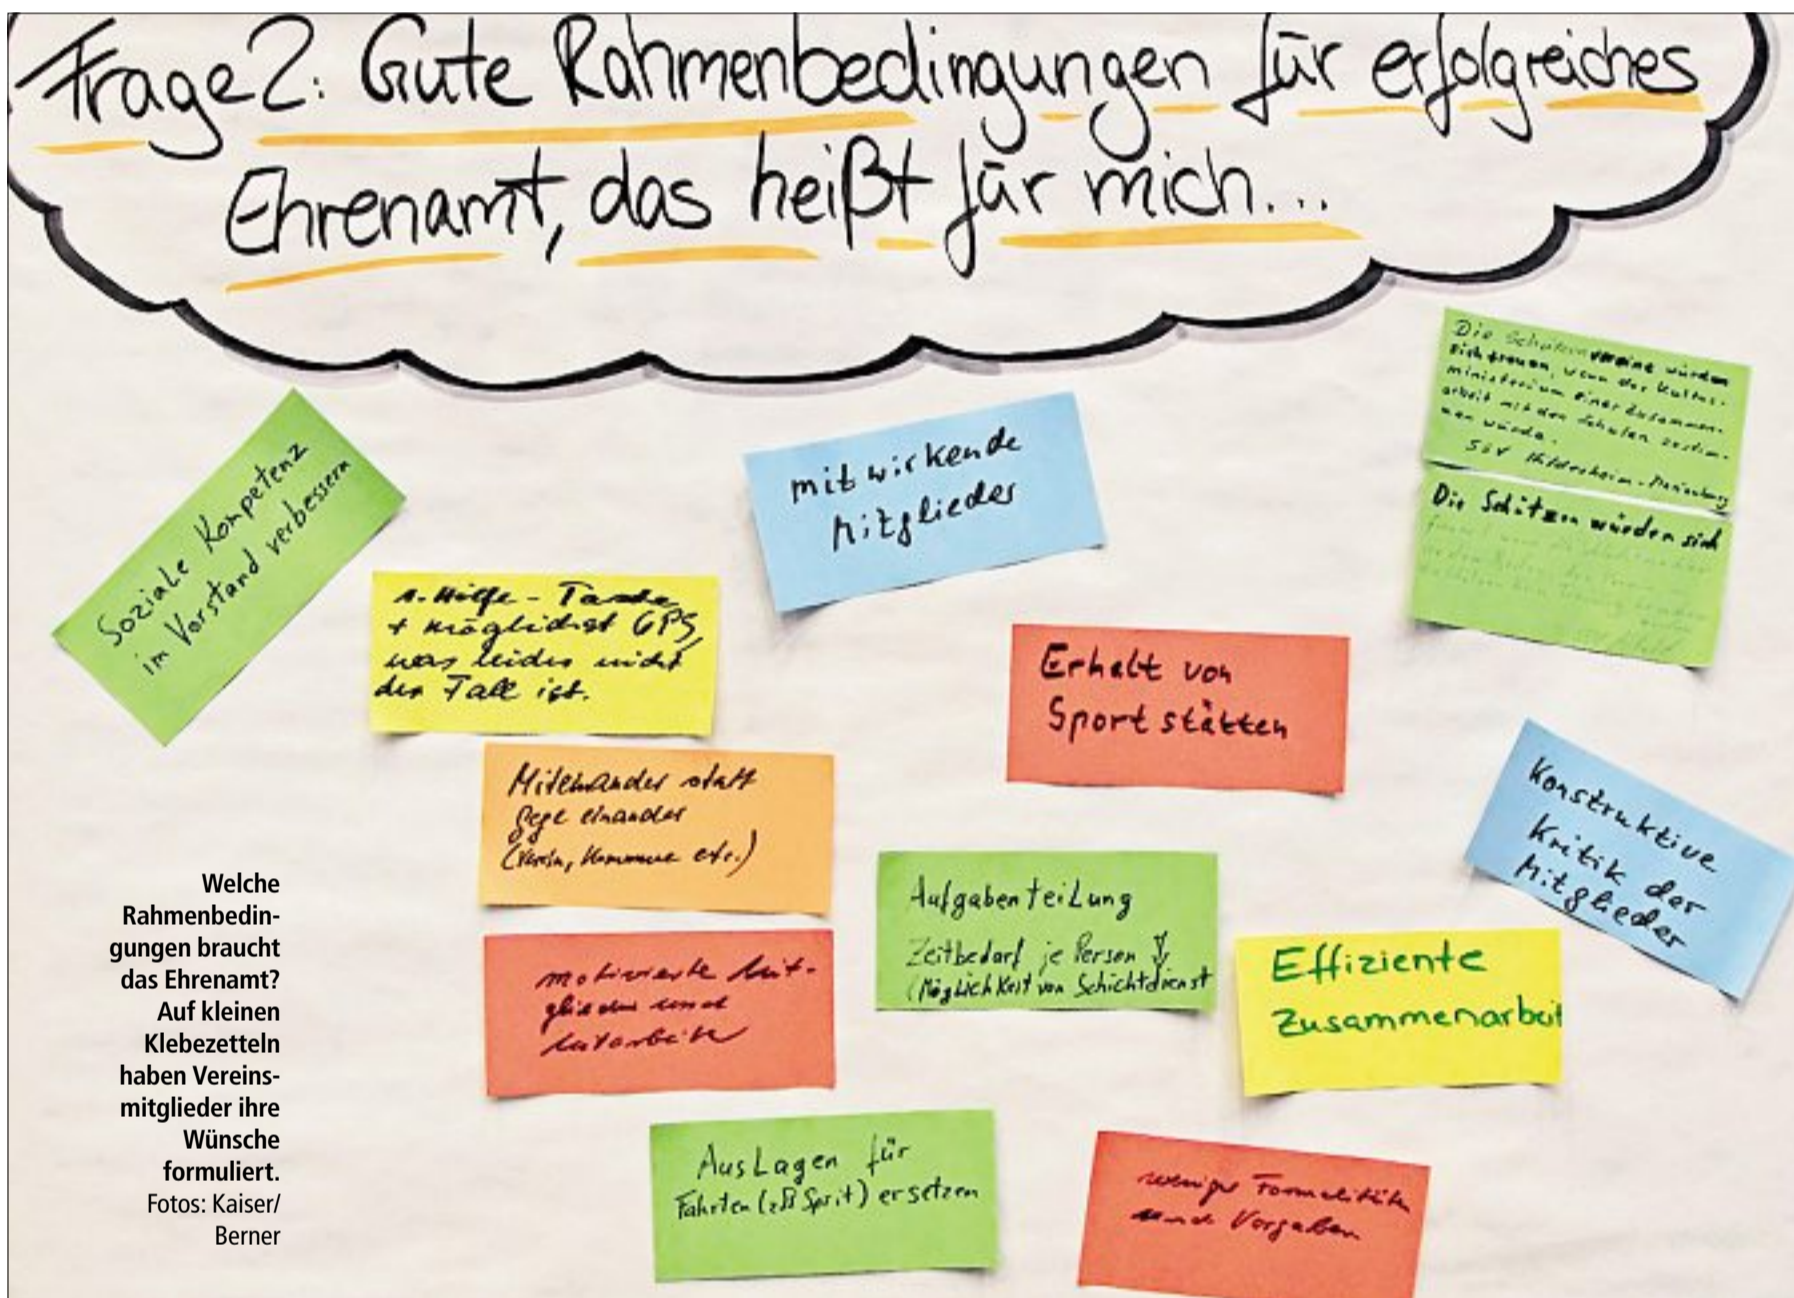 Frage 2: Gute Rahmenbedingungen für erfolgreiches
Ehrenamt, das heißt für mich...
Soziale Kompetenz
im Vorstand verbessern
1. Hilfe - Tasche
+ möglichst GPS,
was leider nicht
der Fall ist.
mitwirkende
Mitglieder
Die Schützenvereine würden
sich freuen, wenn das Kultus-
ministerium einer Zusammen-
arbeit mit den Schulen zustim-
men würde.
Hildesheim - Marienburg
Die Schützen würden sich
Erhalt von
Sportstätten
Miteinander statt
gegeeinander
(Verein, Kommune etc.)
Konstruktive
Kritik der
Mitglieder
Aufgabenteilung
Zeitbedarf je Person ⇓
(Möglichkeit von Schichtdienst
motivierte Mit-
glieder und
Mitarbeiter
Effiziente
Zusammenarbeit
Auslagen für
Fahrten (zB Sprit) ersetzen
weniger Formalitäten
und Vorgaben
Welche
Rahmenbedin-
gungen braucht
das Ehrenamt?
Auf kleinen
Klebezetteln
haben Vereins-
mitglieder ihre
Wünsche
formuliert.
Fotos: Kaiser/
Berner